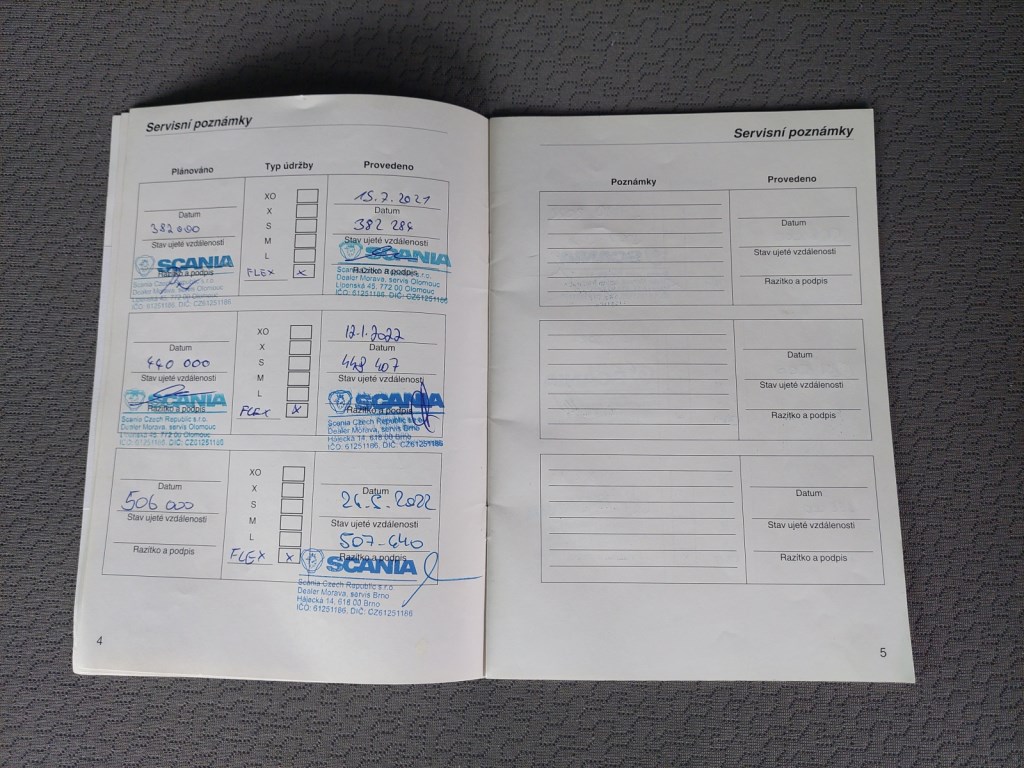 Servisní poznámky
Plánováno
Typ údržby
Provedeno
Datum
382 000
Stav ujeté vzdálenosti
SCANIA
Razítko a podpis
Scania Czech Republic s.r.o.
Dealer Morava, servis Olomouc
Lipenská 45, 772 00 Olomouc
IČO: 61251186, DIČ: CZ61251186
XO
X
S
M
L
FLEX x
15.7.2021
Datum
382 284
Stav ujeté vzdálenosti
SCANIA
Razítko a podpis
Scania Czech Republic s.r.o.
Dealer Morava, servis Olomouc
Lipenská 45, 772 00 Olomouc
IČO: 61251186, DIČ: CZ61251186
Datum
440 000
Stav ujeté vzdálenosti
SCANIA
Razítko a podpis
Scania Czech Republic s.r.o.
Dealer Morava, servis Olomouc
Lipenská 45, 772 00 Olomouc
IČO: 61251186, DIČ: CZ61251186
XO
X
S
M
L
FLEX x
12.1.2022
Datum
448 407
Stav ujeté vzdálenosti
SCANIA
Razítko a podpis
Scania Czech Republic s.r.o.
Dealer Morava, servis Brno
Hájecká 14, 618 00 Brno
IČO: 61251186, DIČ: CZ61251186
Datum
506 000
Stav ujeté vzdálenosti
Razítko a podpis
XO
X
S
M
L
FLEX x
Datum
26.5.2022
Stav ujeté vzdálenosti
507-640
Razítko a podpis
SCANIA
Scania Czech Republic s.r.o.
Dealer Morava, servis Brno
Hájecká 14, 618 00 Brno
IČO: 61251186, DIČ: CZ61251186
4
Servisní poznámky
Poznámky
Provedeno
Datum
Stav ujeté vzdálenosti
Razítko a podpis
Datum
Stav ujeté vzdálenosti
Razítko a podpis
Datum
Stav ujeté vzdálenosti
Razítko a podpis
5